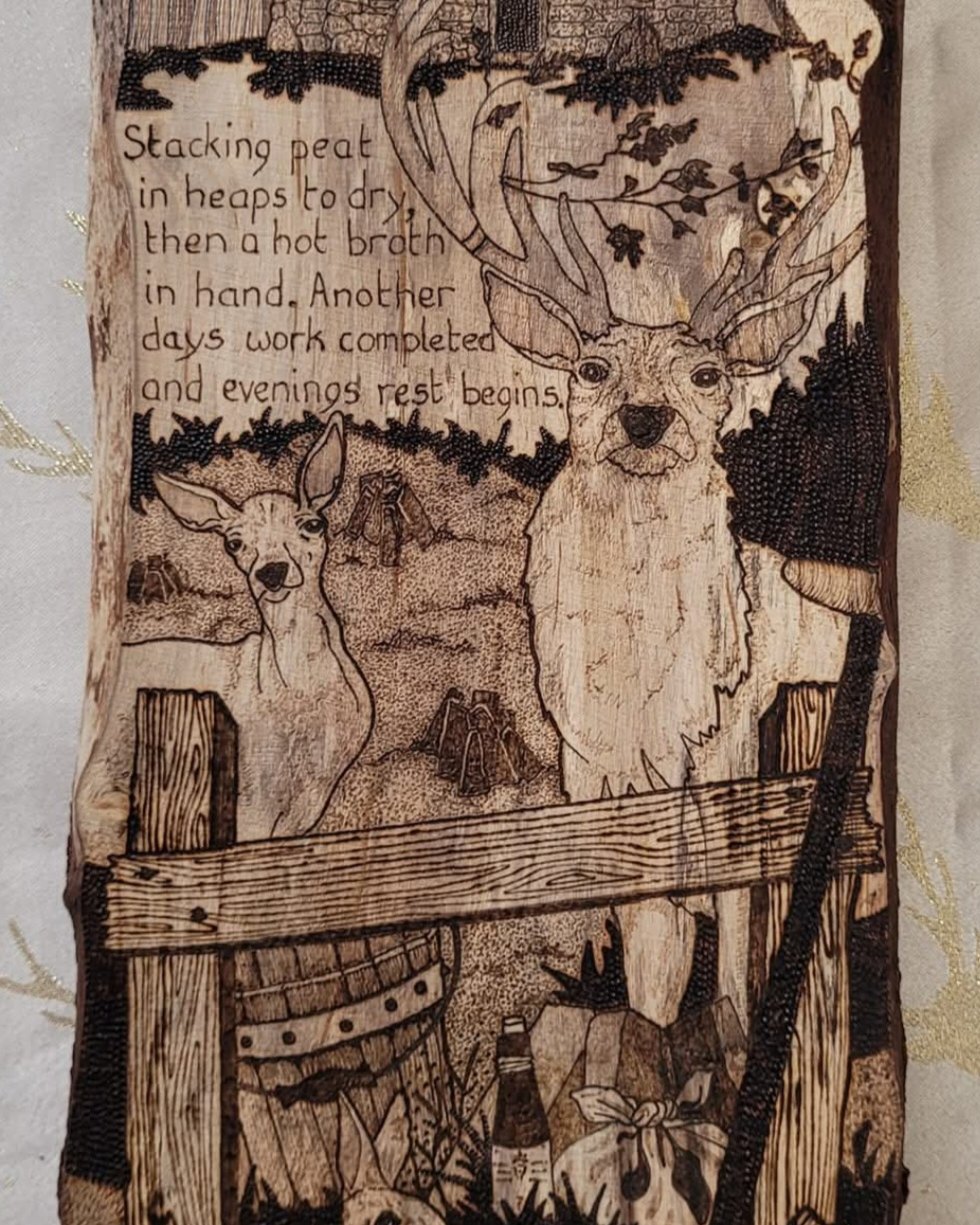 Stacking peat
in heaps to dry,
then a hot broth
in hand. Another
days work completed
and evenings rest begins.